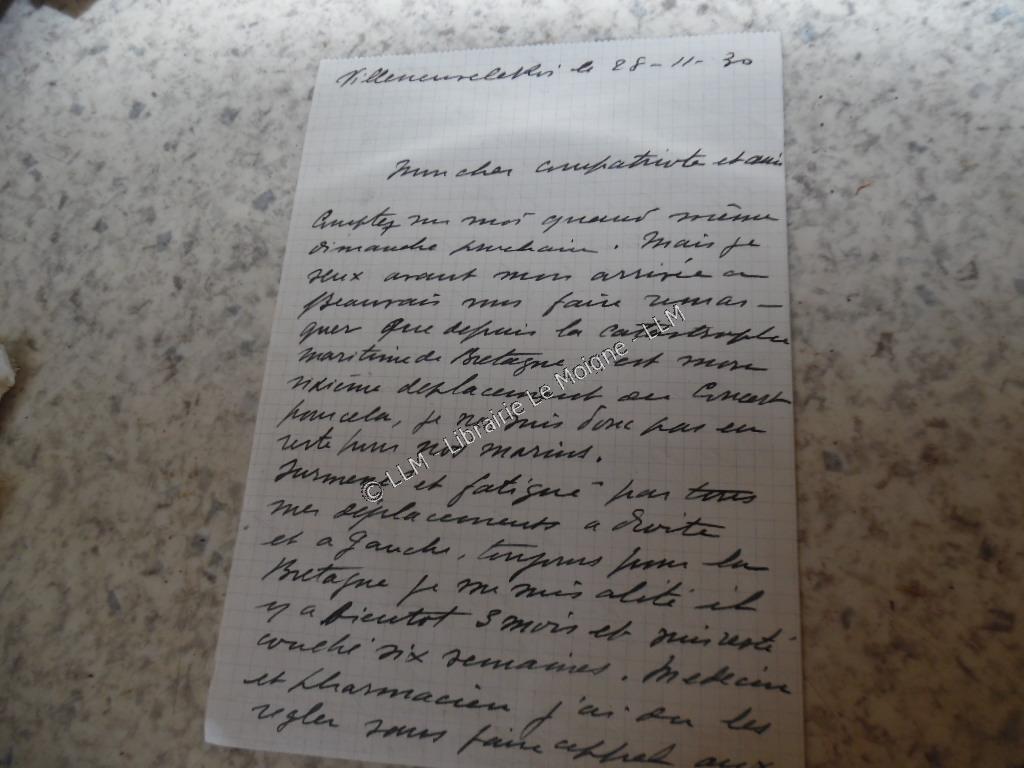 Villeneuve le Roi le 28-11-30
Mon cher compatriote et ami
Comptez sur moi quand même
dimanche prochain. Mais je
veux avant mon arrivée a
Beauvais vous faire remar-
quer que depuis la catastrophe
maritime de Bretagne, c'est mon
sixième déplacement ou Concert
pour cela, je ne suis donc pas en
reste pour nos marins.
Surmené et fatigué par tous
mes déplacements a droite
et a gauche, toujours pour la
Bretagne je me suis alité il
y a bientot 3 mois et suis resté
couché six semaines. Medecin
et pharmacien j'ai du les
regler sans faire appel aux
© LLM - Librairie Le Moigne - LLM